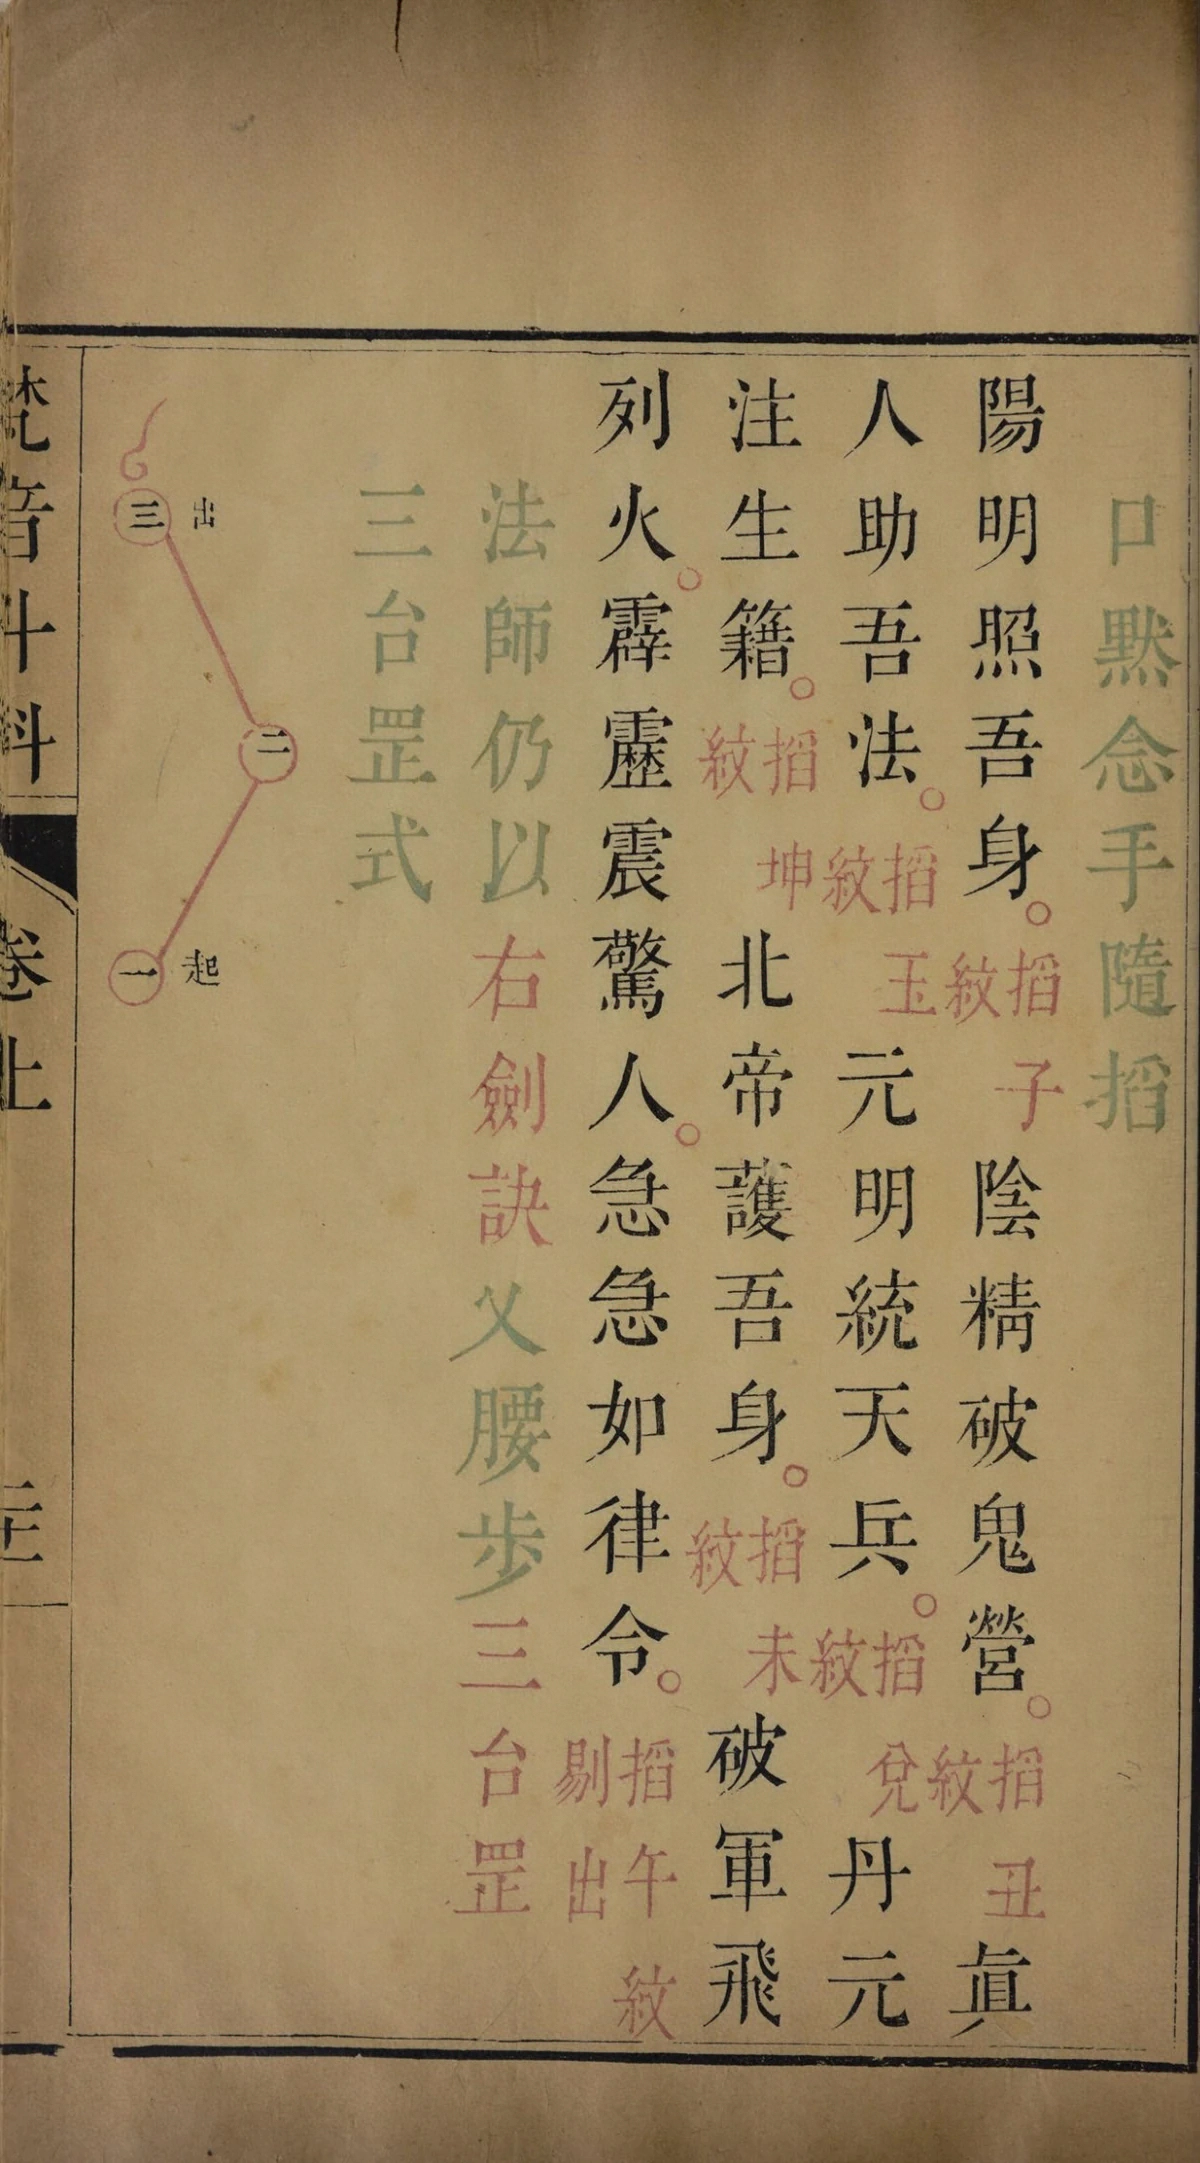 口默念手隨搯
陽明照吾身。搯子紋陰精破鬼營。搯丑紋眞
人助吾法。搯玉紋元明統天兵。搯兌紋丹元
注生籍。搯坤紋北帝護吾身。搯未紋破軍飛
列火。霹靂震驚人。急急如律令。搯午紋剔出
法師仍以右劍訣乂腰步三台罡
三台罡式
出
三
二
起
一
梵音斗科
卷上